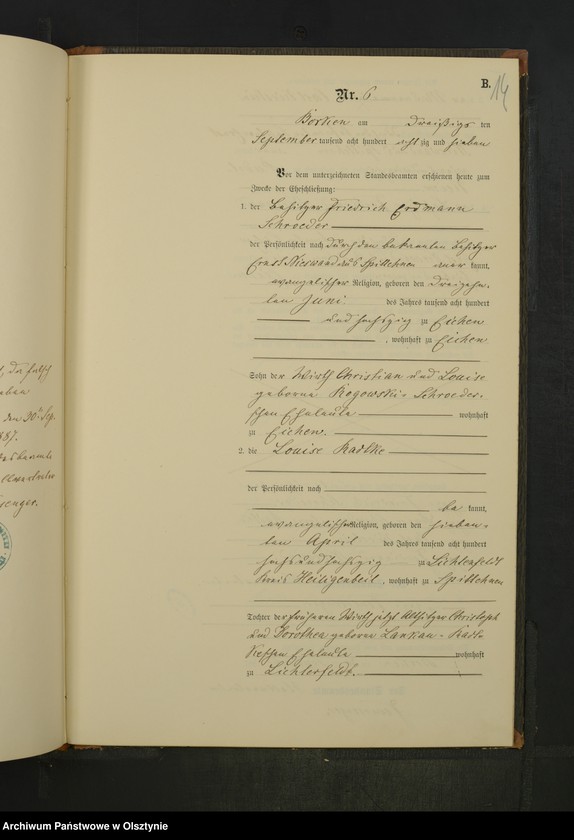 B.
14
Nr. 6
Borken am dreißigs ten
September tausend acht hundert acht zig und sieben
Vor dem unterzeichneten Standesbeamten erschienen heute zum
Zwecke der Eheschließung:
1. der Besitzer Friedrich Erdmann
Schroeder
der Persönlichkeit nach durch den bekannten Besitzer
aus Spittehnen aner kannt,
evangelischer Religion, geboren den dreizehn-
ten Juni des Jahres tausend acht hundert
und sechszig zu Eichen
, wohnhaft zu Eichen
Sohn der Wirth Christian und Louise
geborene Rogowski- Schroeder-
schen Eheleute wohnhaft
zu Eichen.
2. die Louise Radtke
der Persönlichkeit nach
be kannt,
evangelischer Religion, geboren den sieben-
ten April des Jahres tausend acht hundert
sechsundsechszig zu Lichtenfeldt
Kreis Heiligenbeil, wohnhaft zu Spittehnen
Tochter der früheren Wirth jetzt Altsitzer Christoph
und Dorothea geborene Lankau- Radt-
keschen Eheleute wohnhaft
zu Lichterfeldt.
, da falsch
den 30t. Sep.
1887.
Archiwum Państwowe w Olsztynie